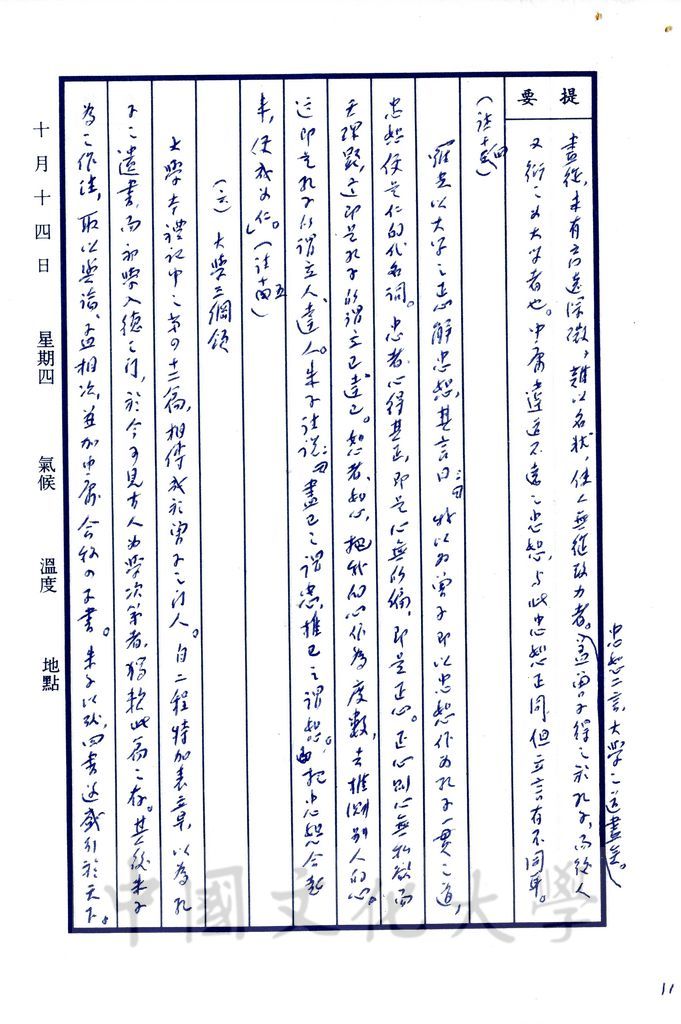 提要
盡從,未有高遠深微,難以名狀,使人無從致力者。蓋曾子得之於孔子,而後人
又衍之為大學者也。中庸違道不遠之忠恕,與此忠恕正同,但立言有不同耳。
忠恕二言,大學之道盡矣。
(註十四)
羅先以大學之正心解忠恕,其言曰:特以為曾子即以忠恕作為孔子一貫之道,
忠恕便是仁的代名詞。忠者心得其正,即是心無所偏,即是正心。正心則心無私欲而
天理顯,這即是孔子所謂立己達己。恕者,如心,把我的心作為度數,去推測別人的心。
這即是孔子所謂立人、達人。朱子註說:盡己之謂忠,推己之謂恕。由把忠恕合起
來,便成為仁。」(註十五)
(六)大學三綱領
大學本禮記中之第四十二篇,相傳成於曾子之門人。自二程特加表章,以為孔
子之遺書,而初學入德之門,於今可見古人為學次第者,獨賴此篇之存。其後朱子
為之作註,取以與論、孟相次,並加中庸合稱四子書。朱子以後,四書遂盛行於天下。
十月十四日 星期四 氣候 溫度 地點
中國文化大學
11